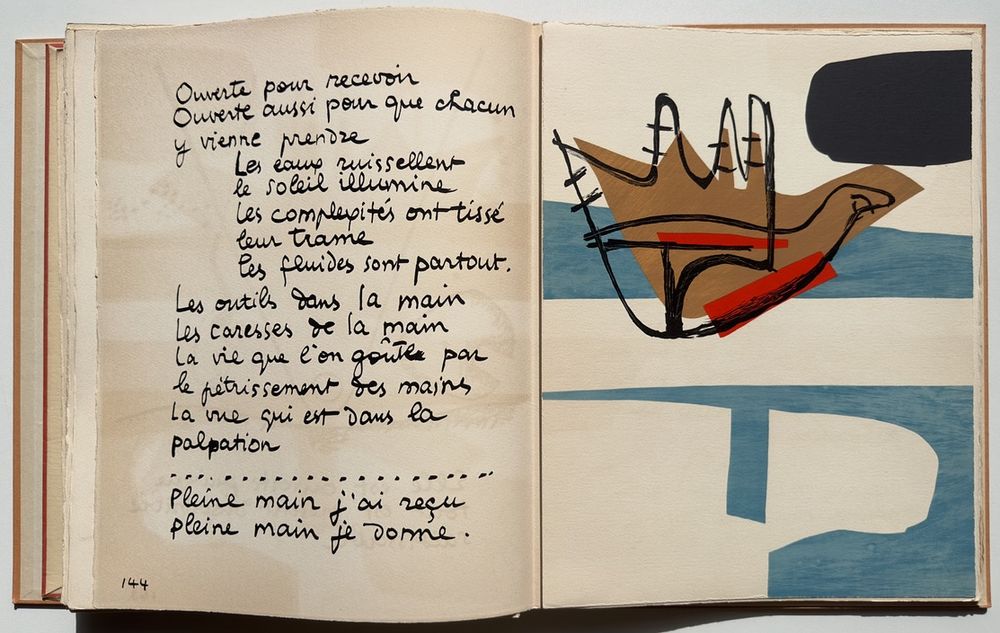 Ouverte pour recevoir
Ouverte aussi pour que chacun
y vienne prendre
Les eaux ruissellent
le soleil illumine
les complexités ont tissé
leur trame
les fluides sont partout.
Les outils dans la main
Les caresses de la main
La vie que l'on goûte par
le pétrissement des mains
La vue qui est dans la
palpation
...................
Pleine main j'ai reçu
Pleine main je donne.
144